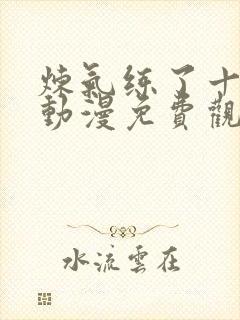 煉氣练了十
動漫免費觀
水流雲在